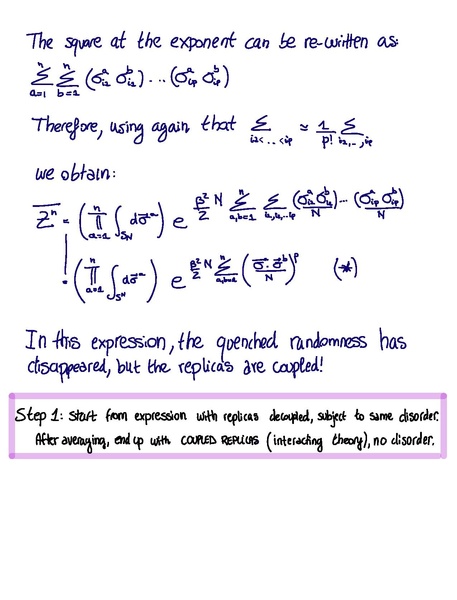 The square at the exponent can be re-written as:
∑_{a=1}^{n} ∑_{b=1}^{n} (σ_{i1}^a σ_{i1}^b) ... (σ_{ip}^a σ_{ip}^b)
Therefore, using again that ∑_{i1<...<ip} ≈ 1/p! ∑_{i1,...,ip}
we obtain:
\overline{Z^n} = (∏_{a=1}^{n} ∫_{S_N} dσ^a) e^{β²/2 N ∑_{a,b=1}^{n} ∑_{i1,i2,...ip} (σ_{i1}^a σ_{i1}^b)/N ... (σ_{ip}^a σ_{ip}^b)/N}
= (∏_{a=1}^{n} ∫_{S_N} dσ^a) e^{β²/2 N ∑_{a,b=1}^{n} (σ^a · σ^b / N)^p} (*)
In this expression, the quenched randomness has
disappeared, but the replicas are coupled!
Step 1: Start from expression with replicas decoupled, subject to same disorder.
After averaging, end up with COUPLED REPLICAS (interacting theory), no disorder.